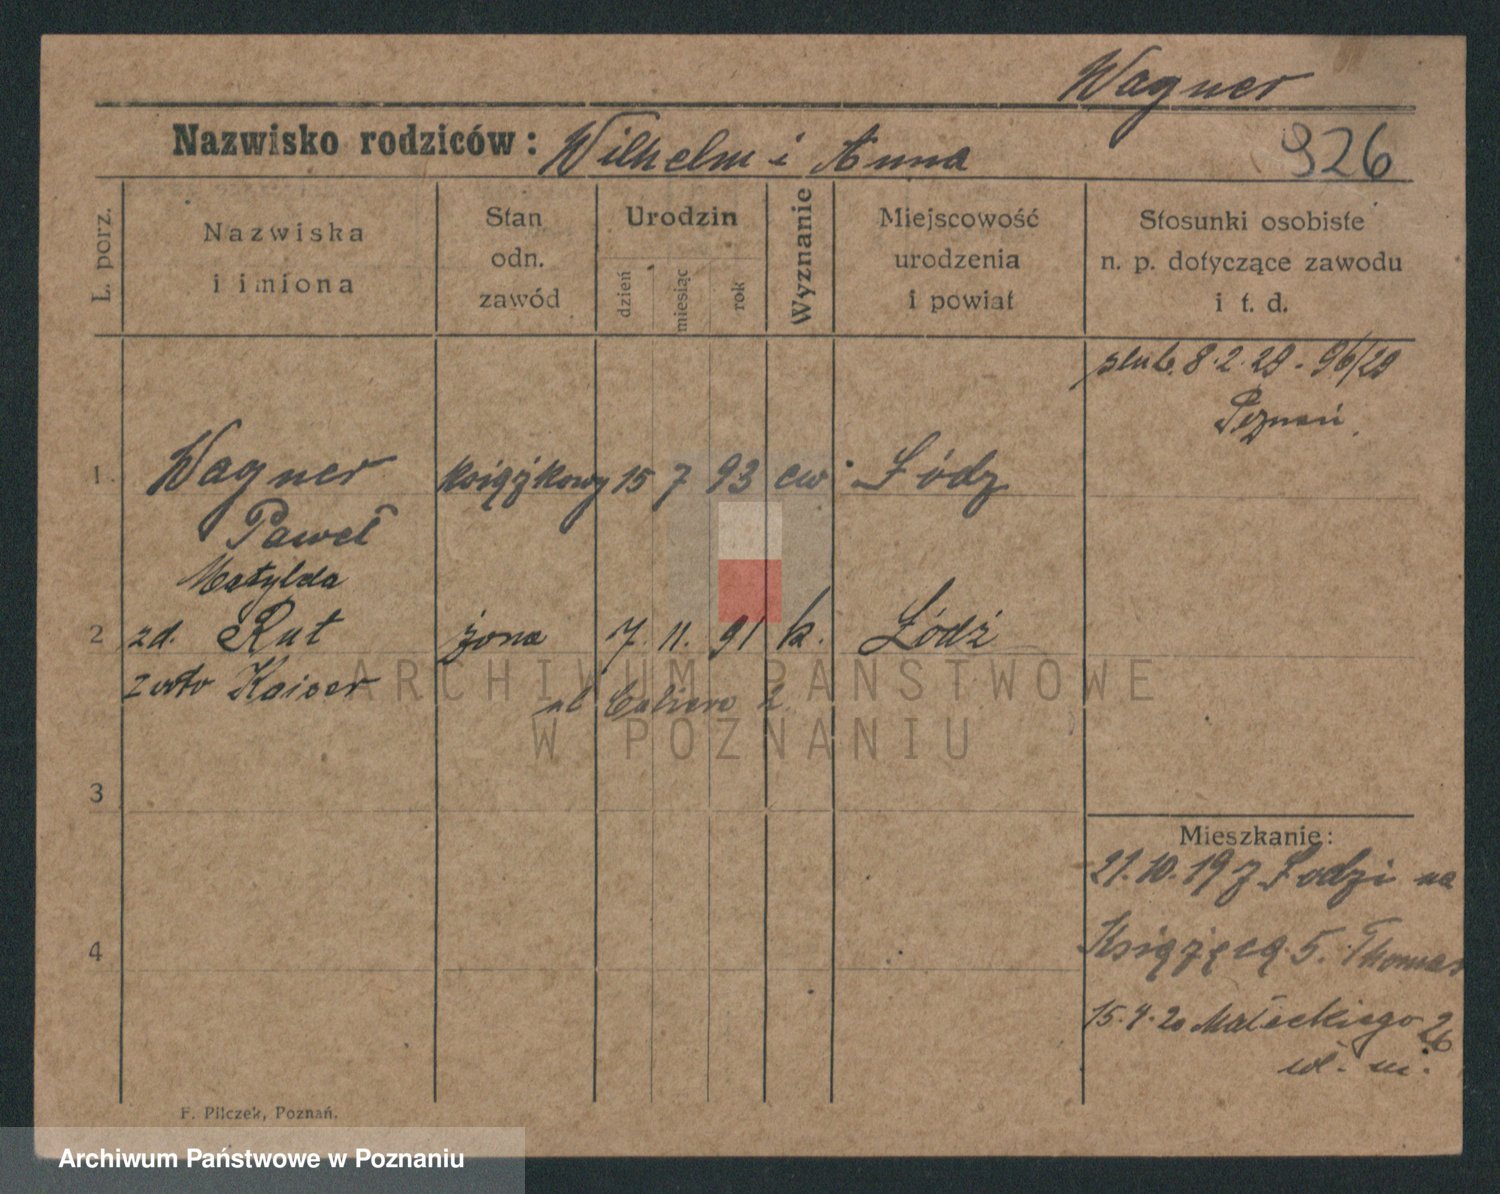 Wagner
Nazwisko rodziców: Wilhelm i Anna 926
L. porz.
Nazwiska
i imiona
Stan
odn.
zawód
Urodzin
dzień
miesiąc
rok
Wyznanie
Miejscowość
urodzenia
i powiat
Stosunki osobiste
n. p. dotyczące zawodu
i t. d.
ślub. 8.2.29 - 96/29
Poznań
1. Wagner książkowy 15 7 93 ew Łódz
Paweł
Matylda
2 zd. Rut żona 7. 11. 91 k. Łódź
Kaiser
ul 2
3
4
Mieszkanie:
21.10.19 z Łodzi na
Książęcą 5. Thomas
15.4.20 Małeckiego 26
wł. m.
F. Pilczek, Poznań.
ARCHIWUM PAŃSTWOWE
W POZNANIU
Archiwum Państwowe w Poznaniu